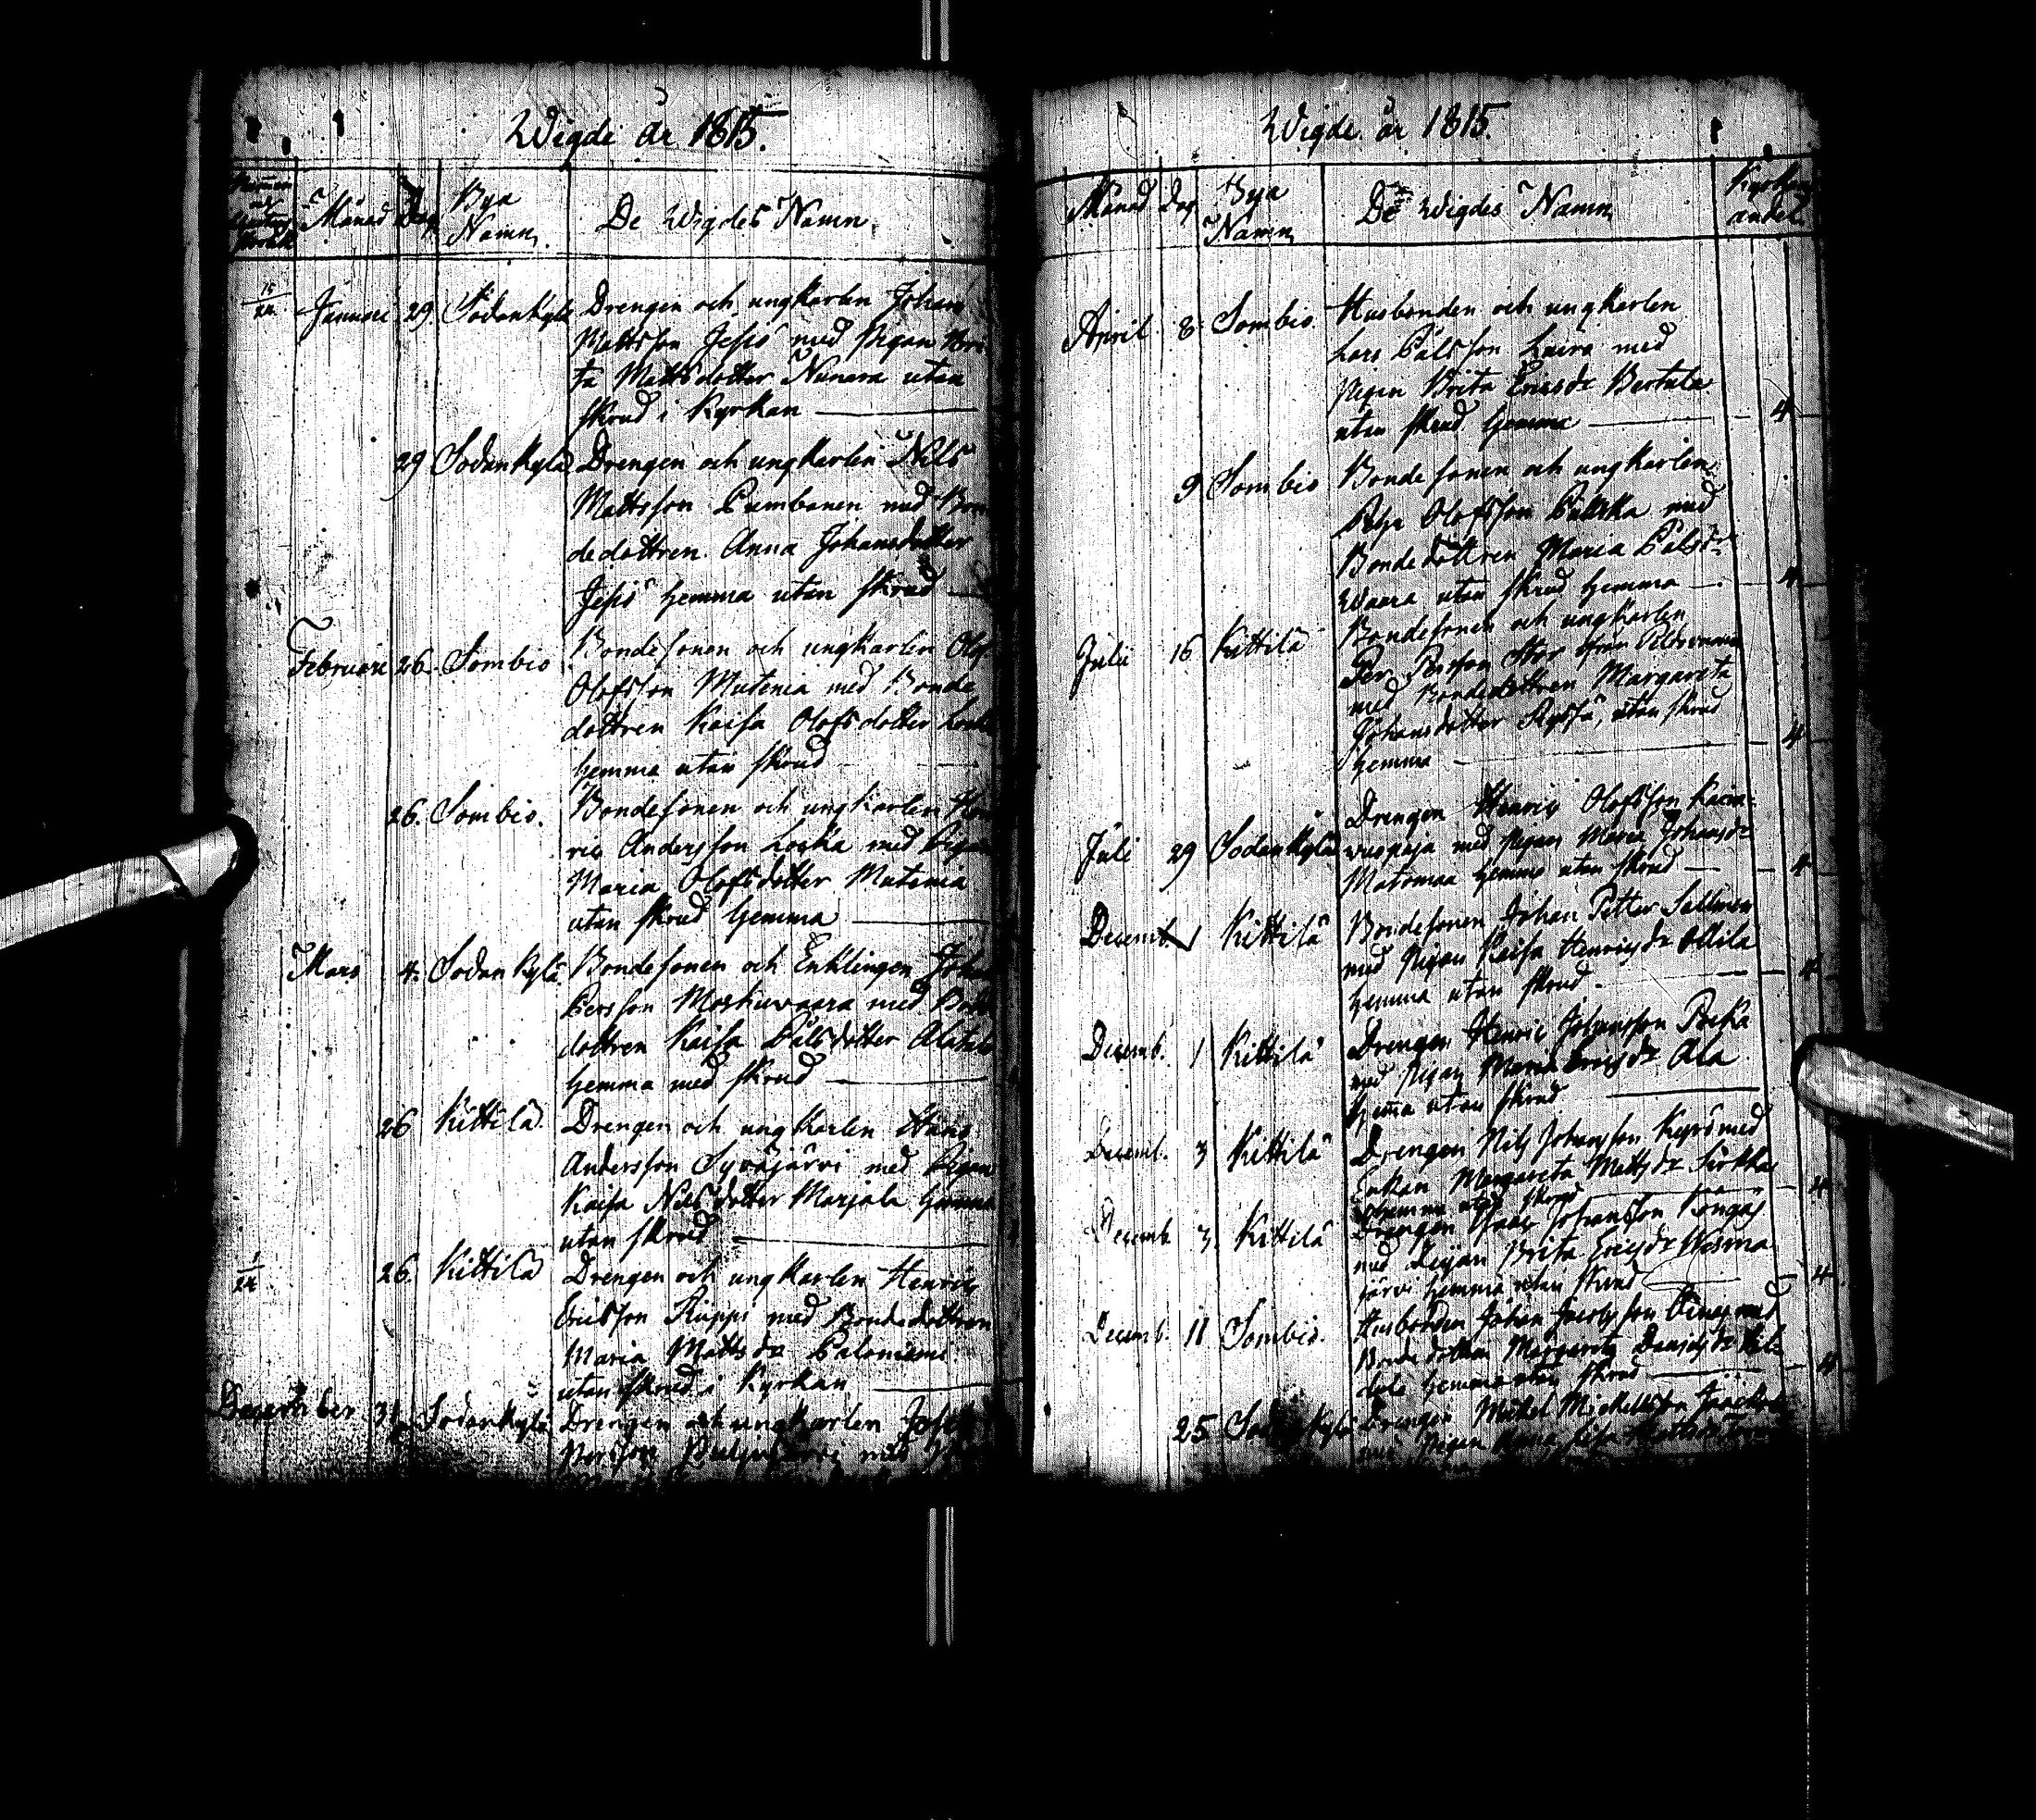 Wigde År 1815.
Månad Dag Bya Namn De Wigdes Namn
15/24 Januari 29 Sodankylä Drengen och ungkarlen Johan
Mattsson Jesiö med Pigan Bri-
ta Mattsdotter Nunara utan
skrud i Kyrkan
29 Sodankylä Drengen och ungkarlen Nils
Mattsson Pumbanen med Bon-
dedottren Anna Johansdotter
Jesiö hemma utan skrud
Februari 26. Sombio Bondesonen och ungkarlen Olof
Olofsson Mutenia med Bonde
dottren Kaisa Olofsdotter
hemma utan skrud
26. Sombio. Bondesonen och ungkarlen Hen
ric Andersson Locka med Pigan
Maria Olofsdotter Mutenia
utan skrud hemma
Mars 4. Sodankylä Bondesonen och Enklingen Johan
Persson Moskuwaara med Bonde
dottren Kaisa Pålsdotter
hemma med skrud
26 Kittilä. Drengen och ungkarlen Hans
Andersson Syväjärvi med Pigan
Kaisa Nilsdotter Marjala hemma
utan skrud
1/24 26. Kittilä Drengen och ungkarlen Henric
Ericsson Riippi med Bondedottren
Maria Mattsdr
utan skrud i Kyrkan
December 31 Sodankylä Drengen och ungkarlen Josef
Persson med
Wigde år 1815.
Månad Dag Bya Namn De Wigdes Namn
April 8. Sombio. Husbonden och ungkarlen
Lars Pålsson Kaira med
Pigan Brita Ericsdr Bertula
utan skrud hemma 4
9 Sombio Bondesonen och ungkarlen
Olofsson med
Bondedottren Maria Pålsdr
Waara utan skrud hemma 4
Juli 16 Kittilä Bondesonen och ungkarlen
Per Persson från
med Bondedottren Margareta
Johansdotter utan skrud
hemma 4
Juli 29 Sodankylä Drengen Henric Olofsson Kaar-
med Pigan Maria Johansdr
Matomaa hemma utan skrud 4
Decemb. 1 Kittilä Bondesonen Johan Petter Sallinen
med Pigan Kaisa Henricsdr Ollila
hemma utan skrud. 4
Decemb. 1 Kittilä Drengen Henric Johansson
med Pigan Maria Ericsdr Ala
hemma utan skrud
Decemb. 3 Kittilä Drengen Nils Johansson Kyrö med
Enkan Margareta Mattsdr Sirkka
hemma utan skrud 4
Decemb. 3. Kittilä Drengen Isaac Johansson Köngäs
med Pigan Brita Ericsdr Wesma
järvi hemma utan skrud 4
Decemb. 11 Sombio. Husbonden Johan med
Bondedottren Margareta
hemma utan skrud 4
25 Sodankylä Drengen Mickel Mickelsson
med Pigan Anna